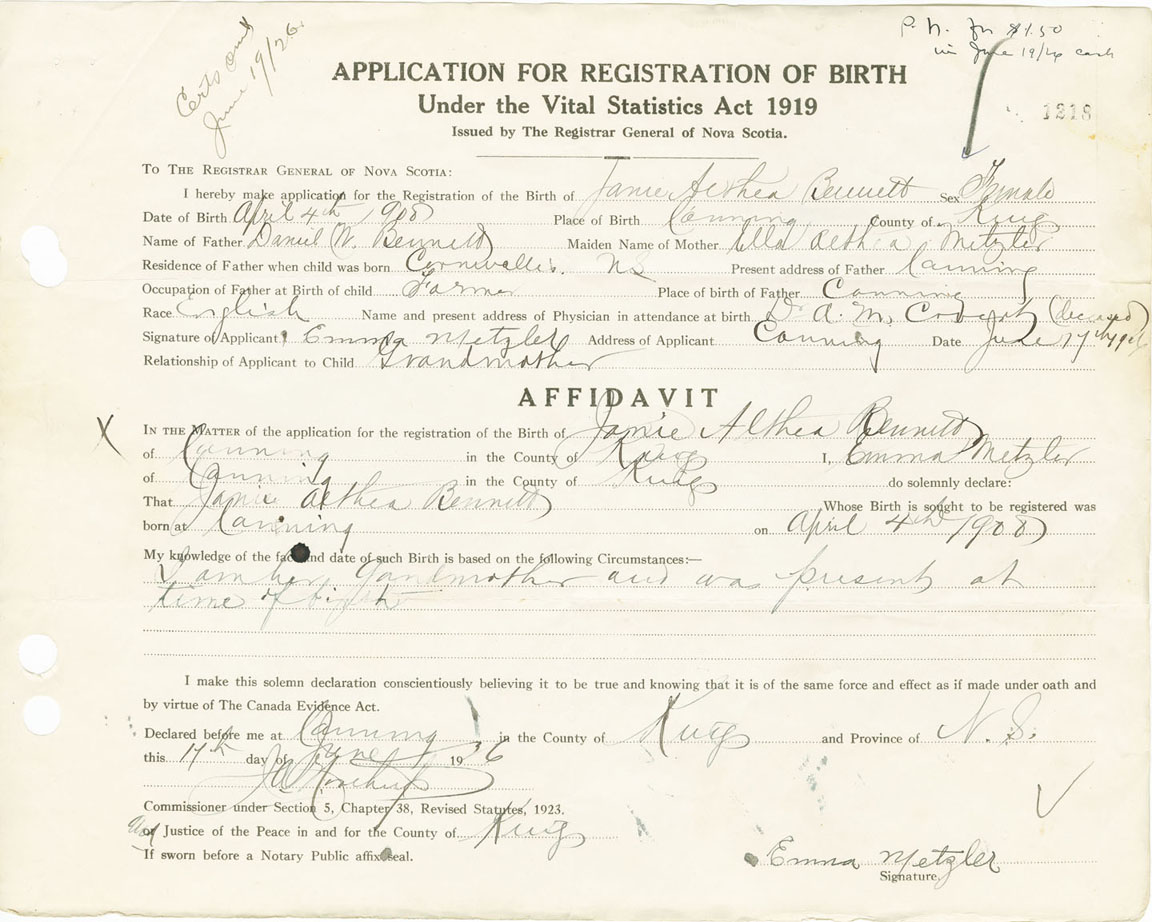 Certs Out
June 19/26.
P. N. for $1.50
in June 19/26 cash
APPLICATION FOR REGISTRATION OF BIRTH
Under the Vital Statistics Act 1919
1218
Issued by The Registrar General of Nova Scotia.
TO THE REGISTRAR GENERAL OF NOVA SCOTIA:
I hereby make application for the Registration of the Birth of Janie Althea Bennett Sex Female
Date of Birth April 4th 1908 Place of Birth Canning County of Kings
Name of Father Daniel W. Bennett Maiden Name of Mother Ella Aethea Metzler
Residence of Father when child was born Cornwallis. NS Present address of Father Canning
Occupation of Father at Birth of child Farmer Place of birth of Father Canning
Race English Name and present address of Physician in attendance at birth Dr A. M. (deceased)
Signature of Applicant Emma Metzler Address of Applicant Canning Date June 17th
Relationship of Applicant to Child Grandmother
AFFIDAVIT
IN THE MATTER of the application for the registration of the Birth of Janie Althea Bennett
of Canning in the County of Kings I, Emma Metzler
of Canning in the County of Kings do solemnly declare:
That Janie Aethea Bennett Whose Birth is sought to be registered was
born at Canning on April 4th 1908
My knowledge of the fact and date of such Birth is based on the following Circumstances:—
I am her Gandmother and was present at
time of birth
I make this solemn declaration conscientiously believing it to be true and knowing that it is of the same force and effect as if made under oath and
by virtue of The Canada Evidence Act.
Declared before me at Canning in the County of Kings and Province of N. S.
this 17th day of June 1926
Commissioner under Section 5, Chapter 38, Revised Statutes, 1923.
and or Justice of the Peace in and for the County of Kings
If sworn before a Notary Public affix seal.
Emma Metzler
Signature.